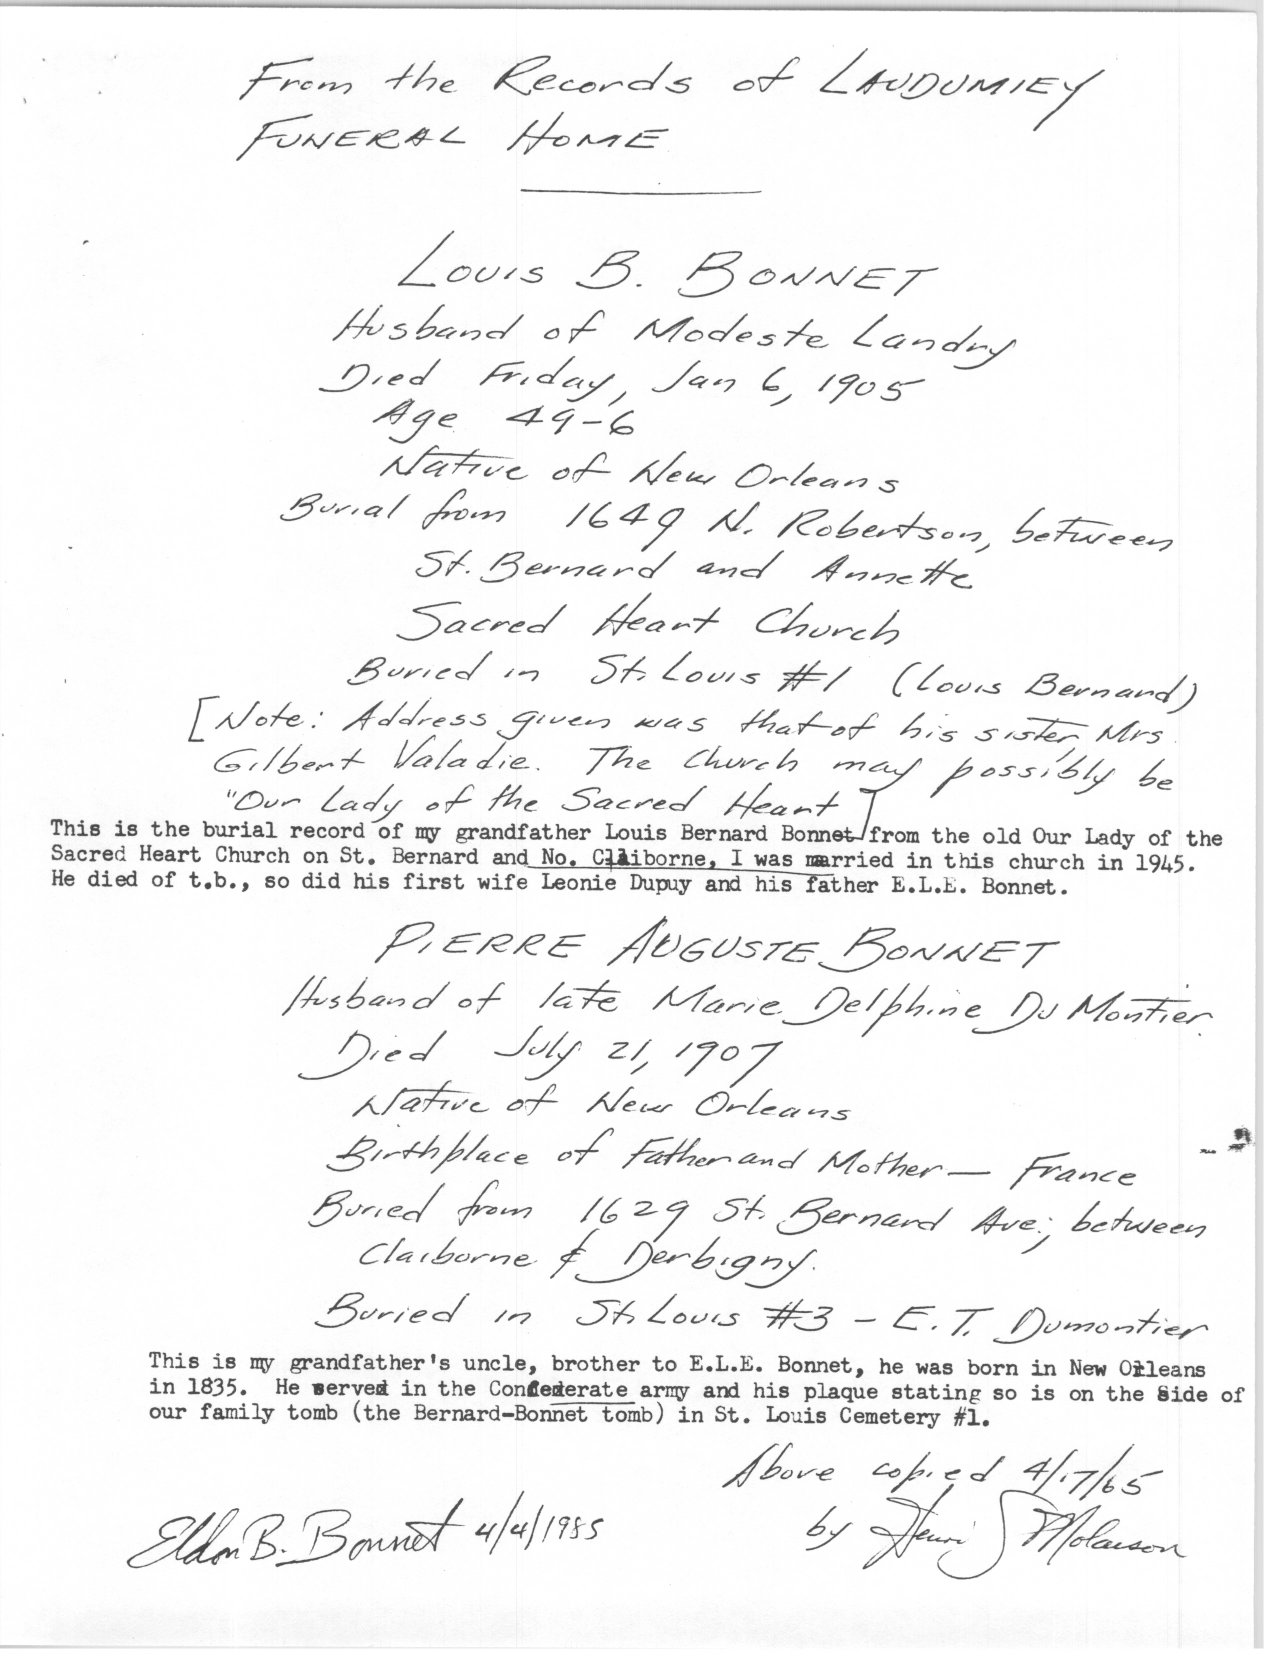 From the Records of LAUDUMIEY
FUNERAL HOME
LOUIS B. BONNET
Husband of Modeste Landry
Died Friday, Jan 6, 1905
Age 49-6
Native of New Orleans
Burial from 1649 N. Robertson, between
St. Bernard and Annette
Sacred Heart Church
Buried in St. Louis #1 (Louis Bernard)
[Note: Address given was that of his sister, Mrs.
Gilbert Valadie. The Church may possibly be
"Our Lady of the Sacred Heart]
This is the burial record of my grandfather Louis Bernard Bonnet from the old Our Lady of the
Sacred Heart Church on St. Bernard and No. Claiborne, I was married in this church in 1945.
He died of t.b., so did his first wife Leonie Dupuy and his father E.L.E. Bonnet.
PIERRE AUGUSTE BONNET
Husband of late Marie Delphine Du Montier
Died July 21, 1907
Native of New Orleans
Birthplace of Father and Mother — France
Buried from 1629 St. Bernard Ave., between
Claiborne & Derbigny.
Buried in St. Louis #3 - E. T. Dumontier
This is my grandfather's uncle, brother to E.L.E. Bonnet, he was born in New Orleans
in 1835. He served in the Confederate army and his plaque stating so is on the Side of
our family tomb (the Bernard-Bonnet tomb) in St. Louis Cemetery #1.
Above copied 4/17/65
by Henri S Molaison
Eldon B. Bonnet 4/4/1985